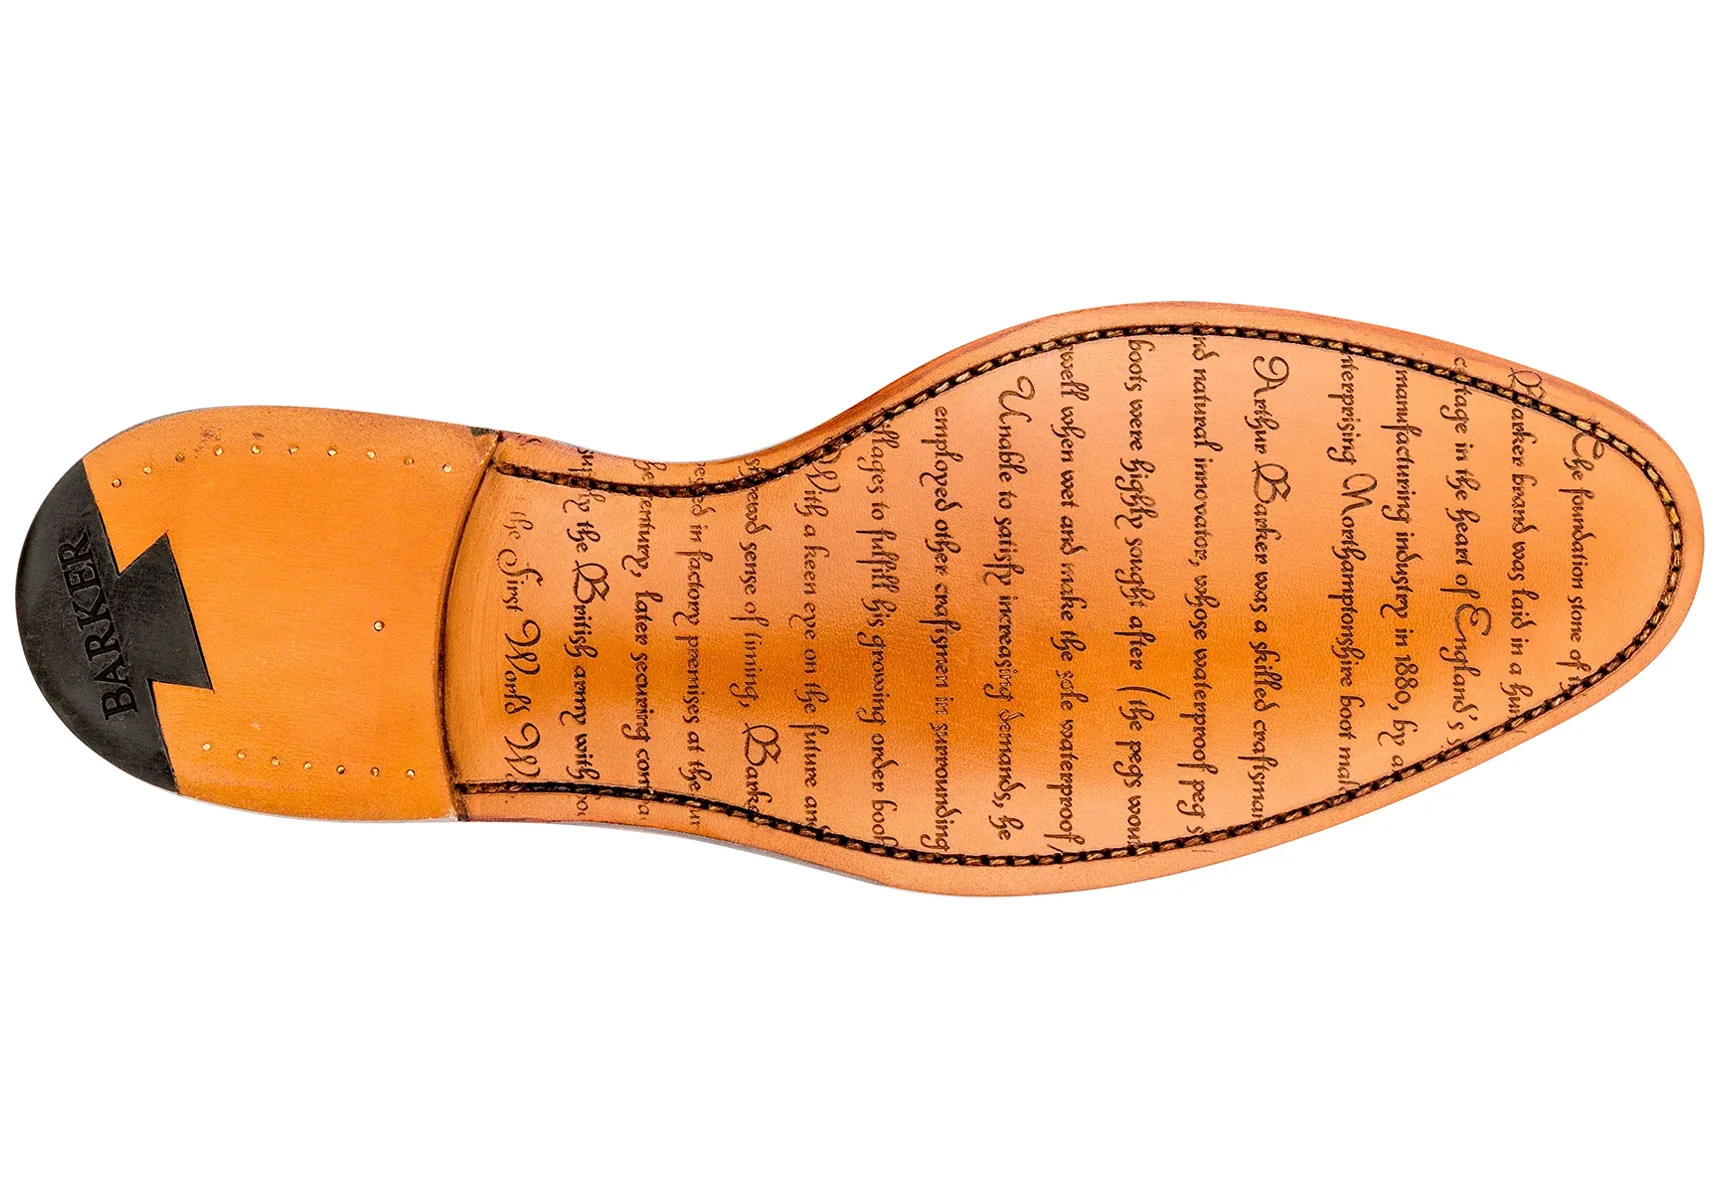 The foundation stone of
Barker brand was laid in a
cottage in the heart of England's
manufacturing industry in 1880, by a
Northamptonshire boot
Arthur Barker was a skilled craftsman
natural innovator, whose waterproof peg
boots were highly sought after (the pegs
swell when wet and make the sole waterproof)
Unable to satisfy increasing demands, he
employed other craftsmen in surrounding
villages to fulfill his growing order
With a keen eye on the future and
sense of timing,
in factory premises at the
century, later securing
the British army with
the First World
BARKER